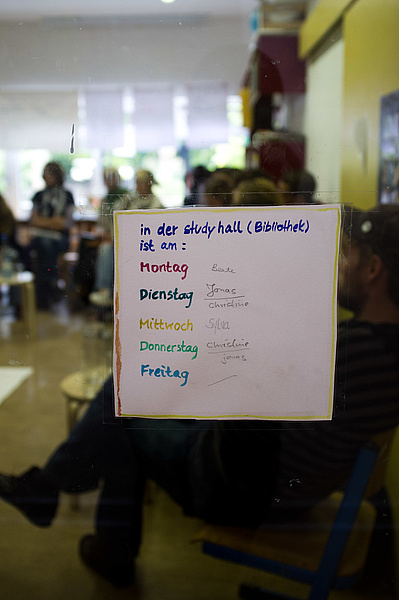 in der study hall (Bibliothek)
ist am :
Montag Beate
Dienstag Jonas
Christine
Mittwoch Sylvia
Donnerstag Christine
Jonas
Freitag —